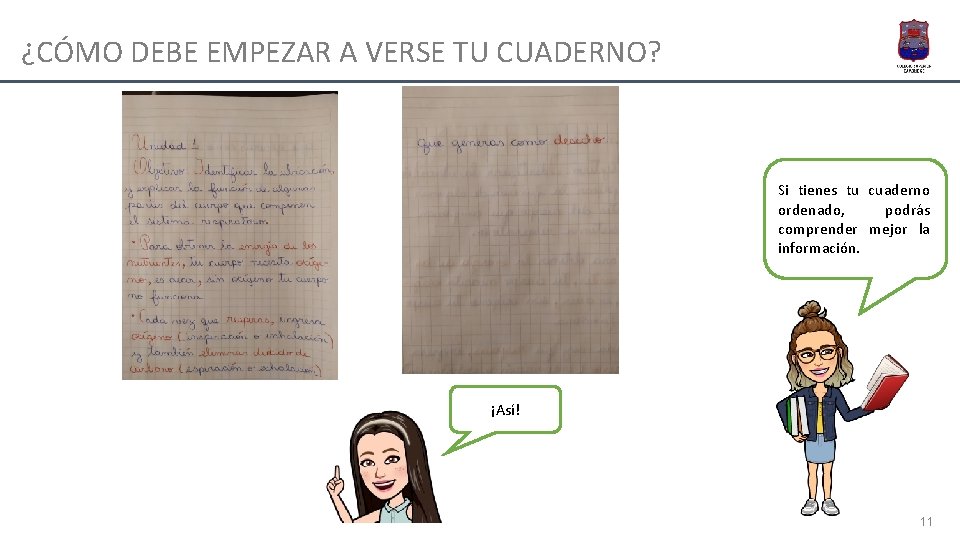 ¿CÓMO DEBE EMPEZAR A VERSE TU CUADERNO?
Unidad 1
Objetivo: Identificar la ubicación
y explicar la función de algunas
partes del cuerpo que componen
el sistema respiratorio.
• Para obtener la energía de los
nutrientes, tu cuerpo necesita oxíge-
no, es decir, sin oxígeno tu cuerpo
no funciona
• Cada vez que respiras, ingresa
oxígeno (inspiración o inhalación)
y también eliminas dióxido de
carbono (espiración o exhalación)
que generas como desecho.
Si tienes tu cuaderno
ordenado, podrás
comprender mejor la
información.
¡Así!
11